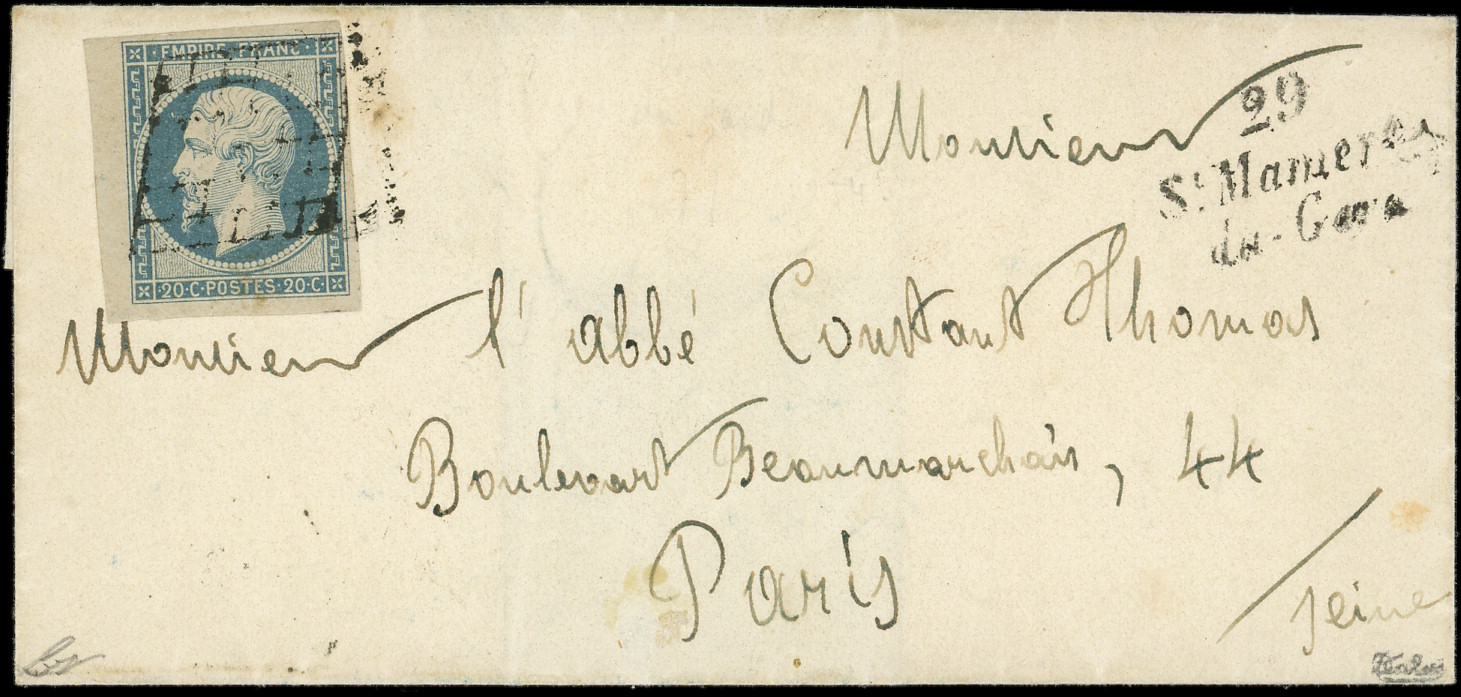 EMPIRE FRANC
20·C·POSTES·20·C
Monsieur
29
St Mamert
du-Gard
Monsieur l'abbé Constant Thomas
Boulevart Beaumarchais, 44
Paris
Seine